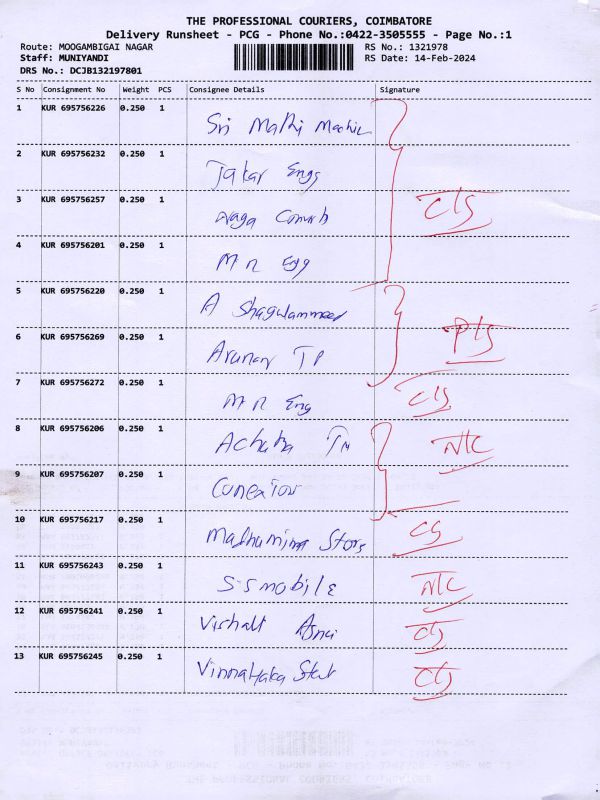 THE PROFESSIONAL COURIERS, COIMBATORE
Delivery Runsheet - PCG - Phone No.:0422-3505555 - Page No.:1
Route: MOOGAMBIGAI NAGAR RS No.: 1321978
Staff: MUNIYANDI RS Date: 14-Feb-2024
DRS No.: DCJB132197801
S No Consignment No Weight PCS Consignee Details Signature
1 KUR 695756226 0.250 1 Sri
2 KUR 695756232 0.250 1 Engs
3 KUR 695756257 0.250 1 Cls
4 KUR 695756201 0.250 1 M R Egg
5 KUR 695756220 0.250 1 A
6 KUR 695756269 0.250 1 Arunan TP Pls
7 KUR 695756272 0.250 1 M R Eng Cls
8 KUR 695756206 0.250 1 NTC
9 KUR 695756207 0.250 1
10 KUR 695756217 0.250 1 Stors
11 KUR 695756243 0.250 1 S-S mobile NTC
12 KUR 695756241 0.250 1
13 KUR 695756245 0.250 1